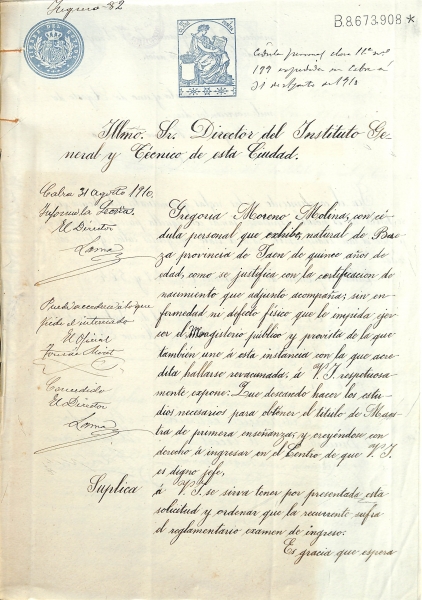 B.8.673.908 *
Cédula personal clase 11ª nº
199 expedida en Cabra á
31 de Agosto de 1910
Illmo. Sr. Director del Instituto Ge-
neral y Técnico de esta Ciudad.
Cabra 31 agosto 1910.
Informe la
El Director
Gregoria Moreno Molina, con cé-
dula personal que exhibe, natural de Bae-
za provincia de Jaen de quince años de
edad, como se justifica con la certificacion de
nacimiento que adjunto acompaña; sin en-
fermedad ni defecto físico que le impida ejer-
cer el Magisterio público y provista de la que
tambien une á esta instancia con la que acre-
dita hallarse revacunada; á V. I. respetuosa-
mente expone: Que deseando hacer los estu-
dios necesarios para obtener el titulo de Maes-
tra de primera enseñanza, y creyéndose con
derecho á ingresar en el Centro de que V. I.
es digno jefe,
Puede accederse á lo que
pide el interesado
El Oficial
Concedido
El Director
Suplica
á V. I. se sirva tener por presentada esta
solicitud y ordenar que la recurrente sufra
el reglamentario examen de ingreso.
Es gracia que espera